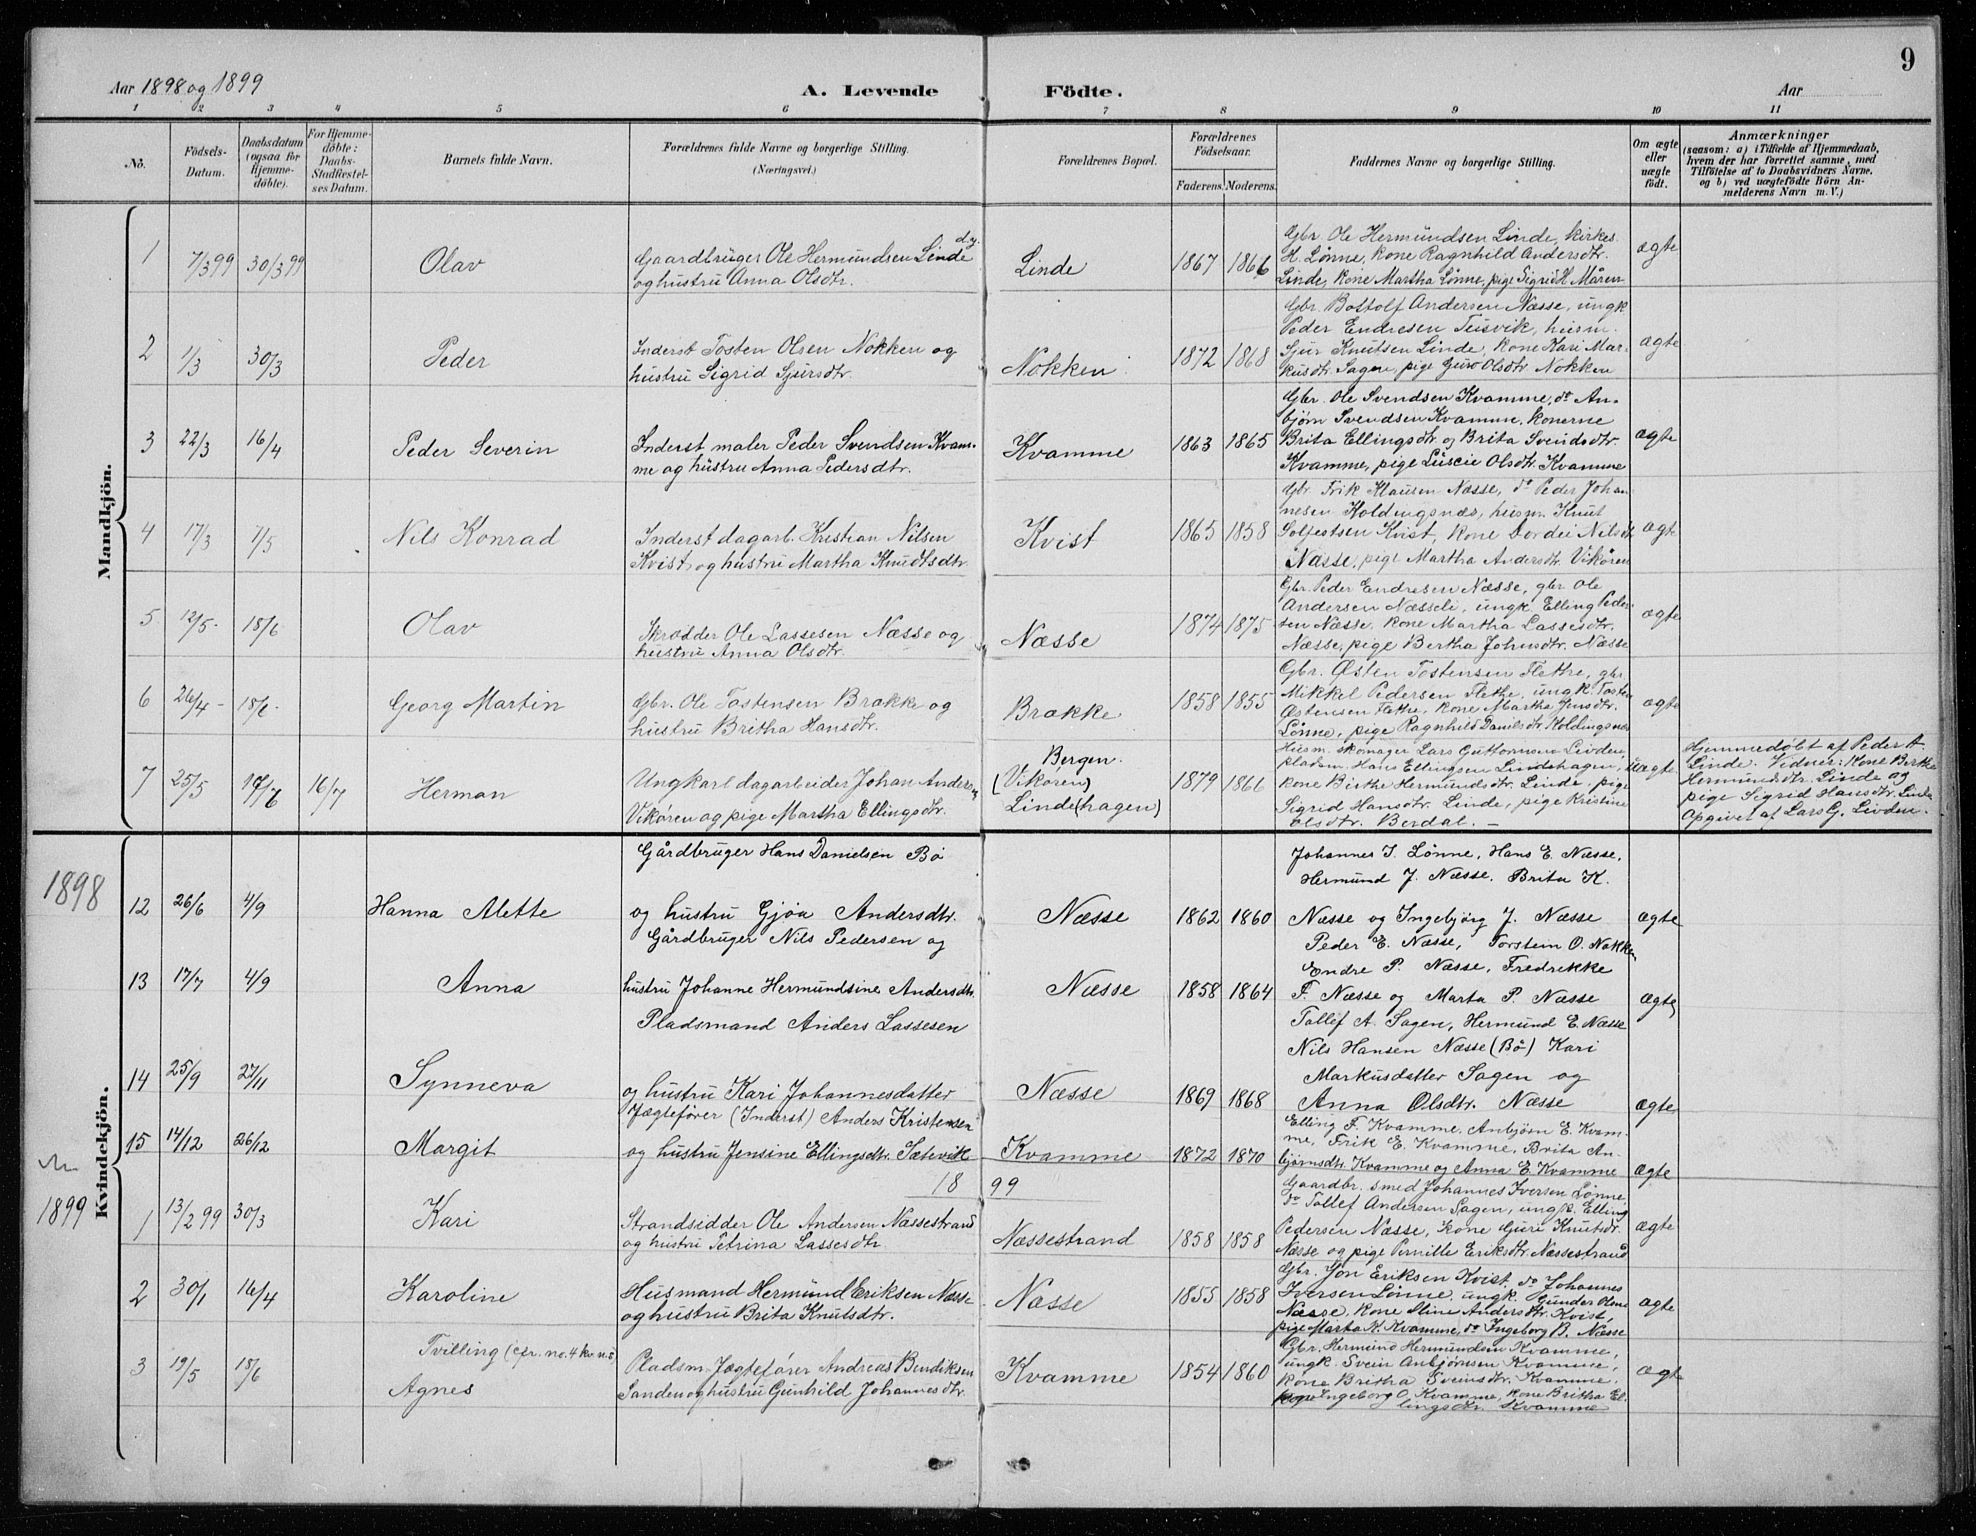 9
Aar 1898 og 1899 A. Levende Födte. Aar
1 2 3 4 5 6 7 8 9 10 11
No. Födsels-Datum. Daabsdatum (ogsaa for Hjemme-döbte). For Hjemme-döbte: Daabs-Stadfæstel-ses Datum. Barnets fulde Navn. Forældrenes fulde Navne og borgerlige Stilling. (Næringsvei.) Forældrenes Bopæl. Forældrenes Födselsaar. Faderens. Moderens. Faddernes Navne og borgerlige Stilling. Om ægte eller uægte födt. Anmærkninger (saasom: a) i Tilfælde af Hjemmedaab, hvem der har forrettet samme, med Tilföielse af to Daabsvidners Navne. og b) ved uægtefödte Börn An-melderens Navn m. V.)
Mandkjön.
1 7/3 99 30/3 99 Olav
Gaardbruger Ole Hermundsen Linde d.y.
og hustru Anna Olsdtr.
Linde 1867 1866
Gbr. Ole Hermundsen Linde, kirkes.
H. Lønne, kone Ragnhild Andersdtr.
Linde, kone Martha Lønne, pige Sigrid H. Måren
ægte
2 1/3 30/3 Peder
Inderst Tosten Olsen Nokken og
hustru Sigrid Sjursdtr.
Nokken 1872 1868
Gbr. Bottolf Andersen Næsse, ungk.
Peder Endresen Teisvik, husm.
Sjur Knutsen Linde, kone Kari Mar-
kusdtr. Sagen, pige Guro Olsdtr. Nokken
ægte
3 22/3 16/4 Peder Severin
Inderst maler Peder Svendsen Kvam-
me og hustru Anna Pedersdtr.
Kvamme 1863 1865
Gbr. Ole Svendsen Kvamme, do An-
bjørn Svendsen Kvamme, konerne
Brita Ellingsdtr. og Brita Svendsdtr.
Kvamme, pige Luscie Olsdtr. Kvamme
ægte
4 17/3 7/5 Nils Konrad
Inderst dagarb. Kristian Nilsen
Kvist og hustru Martha Knudtsdtr.
Kvist 1865 1858
Gbr Frik Klausen Næsse, do Peder Johan-
nesen Holdingsnæs, husm. Knut
Solfestsen Kvist, kone Dordei Nilsdtr
Næsse, pige Martha Andersdtr. Vikøren
ægte
5 12/5 18/6 Olav
Skrædder Ole Lassesen Næsse og
hustru Anna Olsdtr.
Næsse 1874 1875
Gbr. Peder Endresen Næsse, gbr Ole
Andersen Næsseli, ungk. Elling Peder-
sen Næsse, kone Martha Lassesdtr.
Næsse, pige Bertha Johnsdtr. Næsse
ægte
6 26/4 18/6 Georg Martin
Gbr. Ole Tostensen Brække og
hustru Britha Hansdtr.
Brække 1858 1855
Gbr. Østen Tostensen Flethe, gbr
Mikkel Pedersen Flethe, ungk. Tosten
Østensen Flethe, kone Martha Jensdtr.
Lønne, pige Ragnhild Danielsdtr. Holdingsnæs
ægte
7 25/5 16/7 Herman
Ungkarl dagarbeider Johan Andersen
Vikøren og pige Martha Ellingsdtr.
Bergen.
(Vikøren)
Linde(hagen)
1879 1866
Husm. skomager Lars Guttormsen Livden
pladsm. Hans Ellingsen Lindehagen,
kone Birthe Hermundsdtr. Linde, pige
Sigrid Hansdtr. Linde, pige Kristine
Olsdtr. Berdal. —
uægte
Hjemmedøbt af Peder A.
Linde. Vidner: Kone Berthe
Hermundsdtr. Linde og
pige Sigrid Hansdtr. Linde
Opgivet af Lars G. Livden.
Kvindekjön.
1898
12 26/6 4/9 Hanna Alette
Gårdbruger Hans Danielsen Bø
og hustru Gjøa Andersdtr.
Næsse 1862 1860
Johannes I. Lønne, Hans E. Næsse,
Hermund J. Næsse. Brita K.
Næsse og Ingebjørg J. Næsse
ægte
13 17/7 4/9 Anna
Gårdbruger Nils Pedersen og
hustru Johanne Hermundsine Andersdtr.
Næsse 1858 1864
Peder E. Næsse, Torstein O. Nokken
Endre P. Næsse, Fredrekke
F. Næsse og Marta P. Næsse
ægte
14 25/9 27/11 Synneva
Pladsmand Anders Lassesen
og hustru Kari Johannesdatter
Næsse 1869 1868
Tollef A. Sagen, Hermund E. Næsse
Nils Hansen Næsse (Bø) Kari
Markusdatter Sagen og
Anna Olsdtr. Næsse
ægte
15 14/12 26/12 Margit
Jægtefører (Inderst) Anders Kristensen
og hustru Jensine Ellingsdtr. Sætevik
Kvamme 1872 1870
Elling F. Kvamme, Anbjørn E. Kvam-
me, Frik E. Kvamme, Brita An-
bjørnsdtr. Kvamme og Anna E. Kvamme
ægte
1899
18 99
1 13/2 99 30/3 Kari
Strandsidder Ole Andersen Næssestrand
og hustru Petrina Lassesdtr.
Næssestrand 1858 1858
Gaardbr. smed Johannes Iversen Lønne
do Tollef Andersen Sagen, ungk. Elling
Pedersen Næsse, kone Guri Knutsdtr.
Næsse og pige Pernille Eriksdtr. Næssestrand
ægte
2 30/1 16/4 Karoline
Husmand Hermund Eriksen Næsse
og hustru Brita Knutsdtr.
Næsse 1855 1858
Gbr. Jon Eriksen Kvist, do Johannes
Iversen Lønne, ungk. Gunder Olsen
Næsse, kone Stine Andersdtr. Kvist,
pige Marta K. Kvamme, do Ingeborg B. Næsse
ægte
3 19/5 18/6 Tvilling (cfr. no. 4 kv.n.s.)
Agnes
Pladsm. Jægtefører Andreas Bendiksen
Sanden og hustru Gunhild Johannesdtr.
Kvamme 1854 1860
Gbr. Hermund Hermundsen Kvamme,
ungk. Svein Anbjørnsen Kvamme,
kone Britha Sveinsdtr. Kvamme,
pige Ingeborg O. Kvamme, kone Britha El-
lingsdtr. Kvamme
ægte